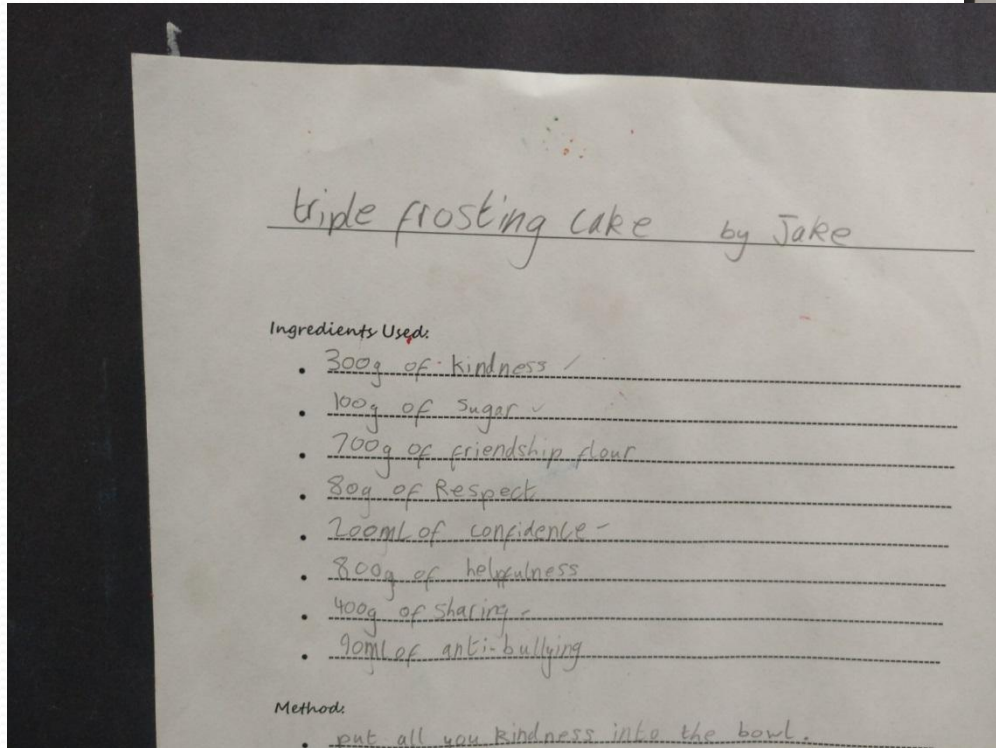 triple frosting cake by Jake
Ingredients Used:
300g of kindness
100g of sugar
700g of friendship flour
80g of Respect
200ml of confidence
800g of helpfulness
400g of sharing
90ml of anti-bullying
Method:
put all you kindness into the bowl.